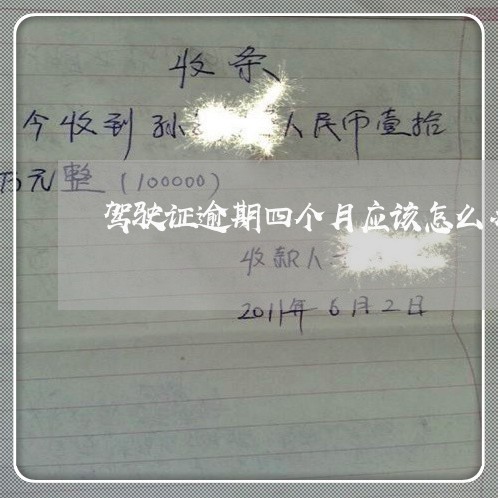 收条
今收到孙 人民币壹拾
万元整(100000)
驾驶证逾期四个月应该怎么
收款人
2011年6月2日